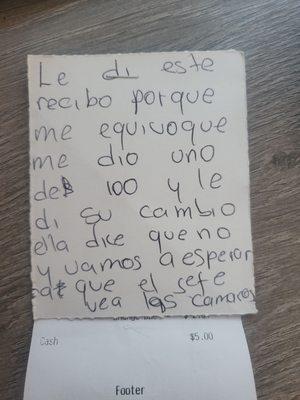 Le di este
recibo porque
me equivoque
me dio uno
de 100 y le
di su cambio
ella dice que no
y vamos a esperar
que el sefe
vea las camaras
Cash $5.00
Footer